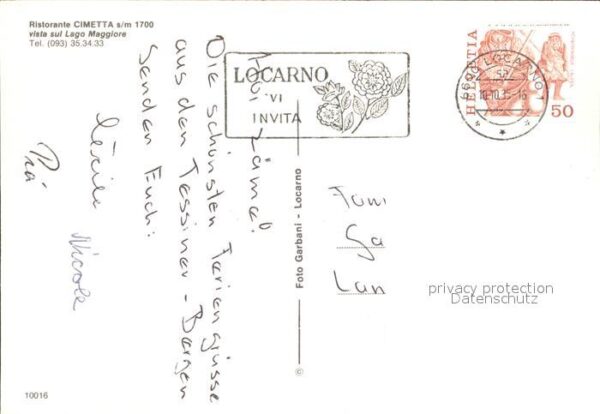 Ristorante CIMETTA s/m 1700
vista sul Lago Maggiore
Tel. (093) 35.34.33
Hoi zäme!
Die schönsten Feriengrüsse
aus den Tessiner-Bergen
senden Euch:
Cécile Nicole
Pia
LOCARNO
VI
INVITA
6600 LOCARNO
HELVETIA
50
Foto Garbani - Locarno
©
Fam
Ga
Lan
privacy protection
Datenschutz
10016